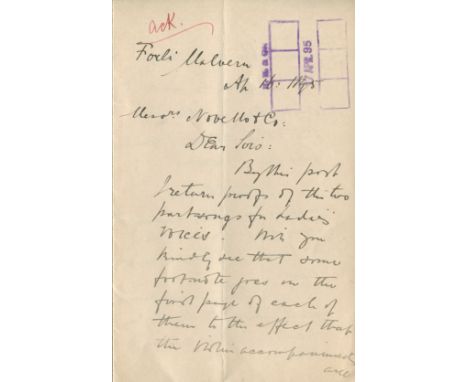 ack.
APR. 95
Forli Malvern
Ap 1895
Messrs. Novello & Co:
Dear Sirs:
By this post
I return proofs of the two
partsongs for Ladies'
Voices. Will you
kindly see that some
footnote goes on the
first page of each of
them to the effect that
the violin accompaniments
are